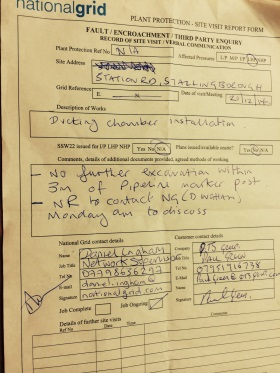 nationalgrid
PLANT PROTECTION - SITE VISIT REPORT FORM
FAULT / ENCROACHMENT / THIRD PARTY ENQUIRY
RECORD OF SITE VISIT / VERBAL COMMUNICATION
Plant Protection Ref No N/A
Affected Pressures LP MP IP
Site Address
STATION RD, STALLINGBOROUGH
Grid Reference E N Date of visit/Meeting 20/12/
Description of Works
Ducting chamber installation
SSW22 issued for LP LHP NHP Yes No N/A Plans issued/available mode? Yes No N/A
Comments, details of additional documents provided, agreed methods of working
- NO further Excavation within
3m of Pipeline marker post
- NR to contact NG (D WATSON)
Monday am to discuss
National Grid contact details
Customer contact details
Name Daniel Ingham
Company
Job Title Network Supervisor
Name Paul Green
Tel No 07998656297
Tel No
E-mail daniel.ingham@
nationalgrid.com
E-mail
Signature
Signature
Job Complete Job Ongoing
Details of further site visits